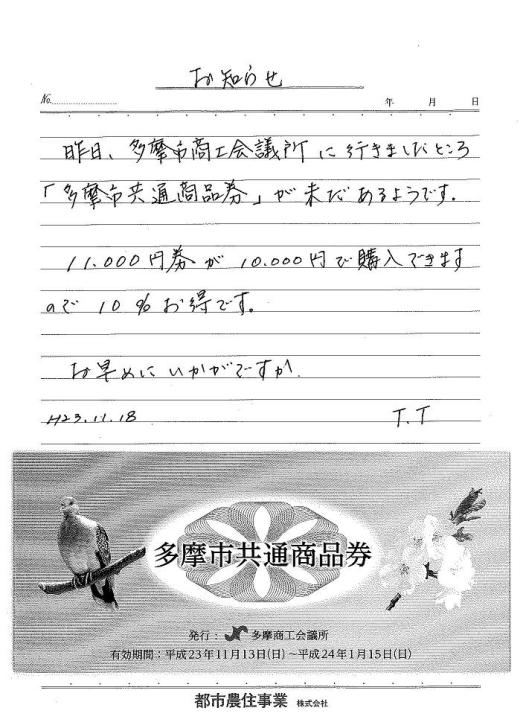 お知らせ
No.
年 月 日
昨日、多摩市商工会議所に行きましたところ
「多摩市共通商品券」が未だあるようです。
11.000円券が10.000円で購入できます
ので10%お得です。
お早めにいかがですか.
H23.11.18 T.T
多摩市共通商品券
発行: 多摩商工会議所
有効期間:平成23年11月13日(日)~平成24年1月15日(日)
都市農住事業 株式会社